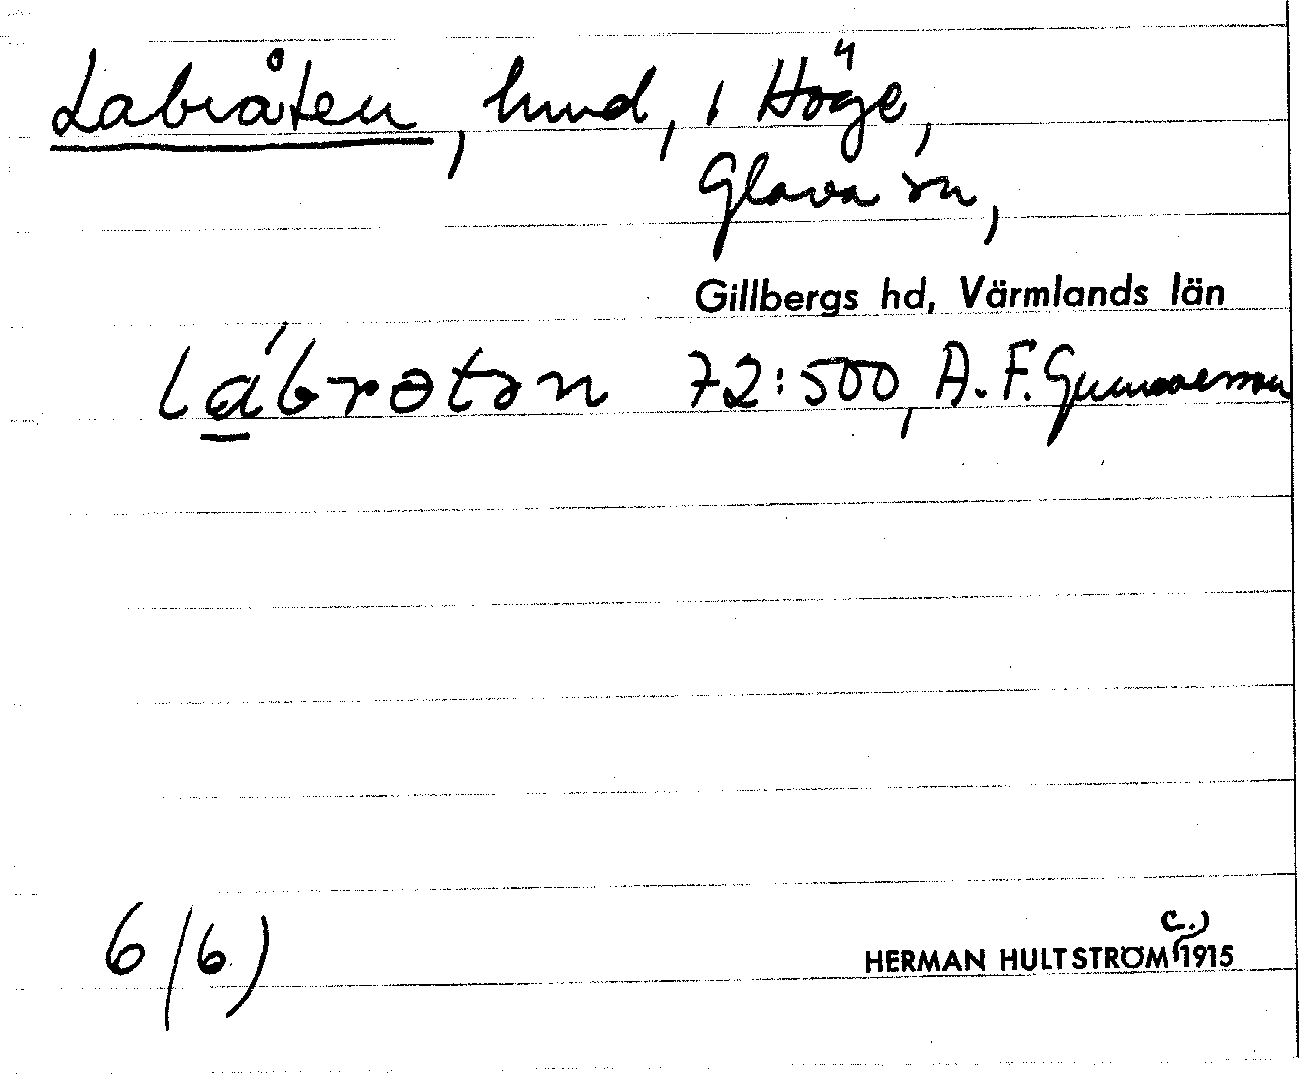 Labråten, hmd, i Höge,
Glava sn,
Gillbergs hd, Värmlands län
lábrɵtən 72:500, A. F. Gunnarsson
6/6)
HERMAN HULTSTRÖM c.) 1915